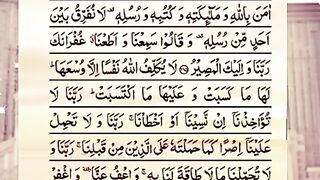 اٰمَنَ بِاللّٰهِ وَ مَلٰٓئِكَتِهٖ وَ كُتُبِهٖ وَ رُسُلِهٖ ۫ لَا نُفَرِّقُ بَیْنَ
اَحَدٍ مِّنْ رُّسُلِهٖ ۫ وَ قَالُوْا سَمِعْنَا وَ اَطَعْنَا ٭ۗ غُفْرَانَكَ
رَبَّنَا وَ اِلَیْكَ الْمَصِیْرُ ﴿۲۸۵﴾ لَا یُكَلِّفُ اللّٰهُ نَفْسًا اِلَّا وُسْعَهَا ؕ
لَهَا مَا كَسَبَتْ وَ عَلَیْهَا مَا اكْتَسَبَتْ ؕ رَبَّنَا لَا
تُؤَاخِذْنَاۤ اِنْ نَّسِیْنَاۤ اَوْ اَخْطَاْنَا ۚ رَبَّنَا وَ لَا تَحْمِلْ
عَلَیْنَاۤ اِصْرًا كَمَا حَمَلْتَهٗ عَلَی الَّذِیْنَ مِنْ قَبْلِنَا ۚ رَبَّنَا وَ
لَا تُحَمِّلْنَا مَا لَا طَاقَةَ لَنَا بِهٖ ۚ وَ اعْفُ عَنَّا ٝ وَ اغْفِرْ